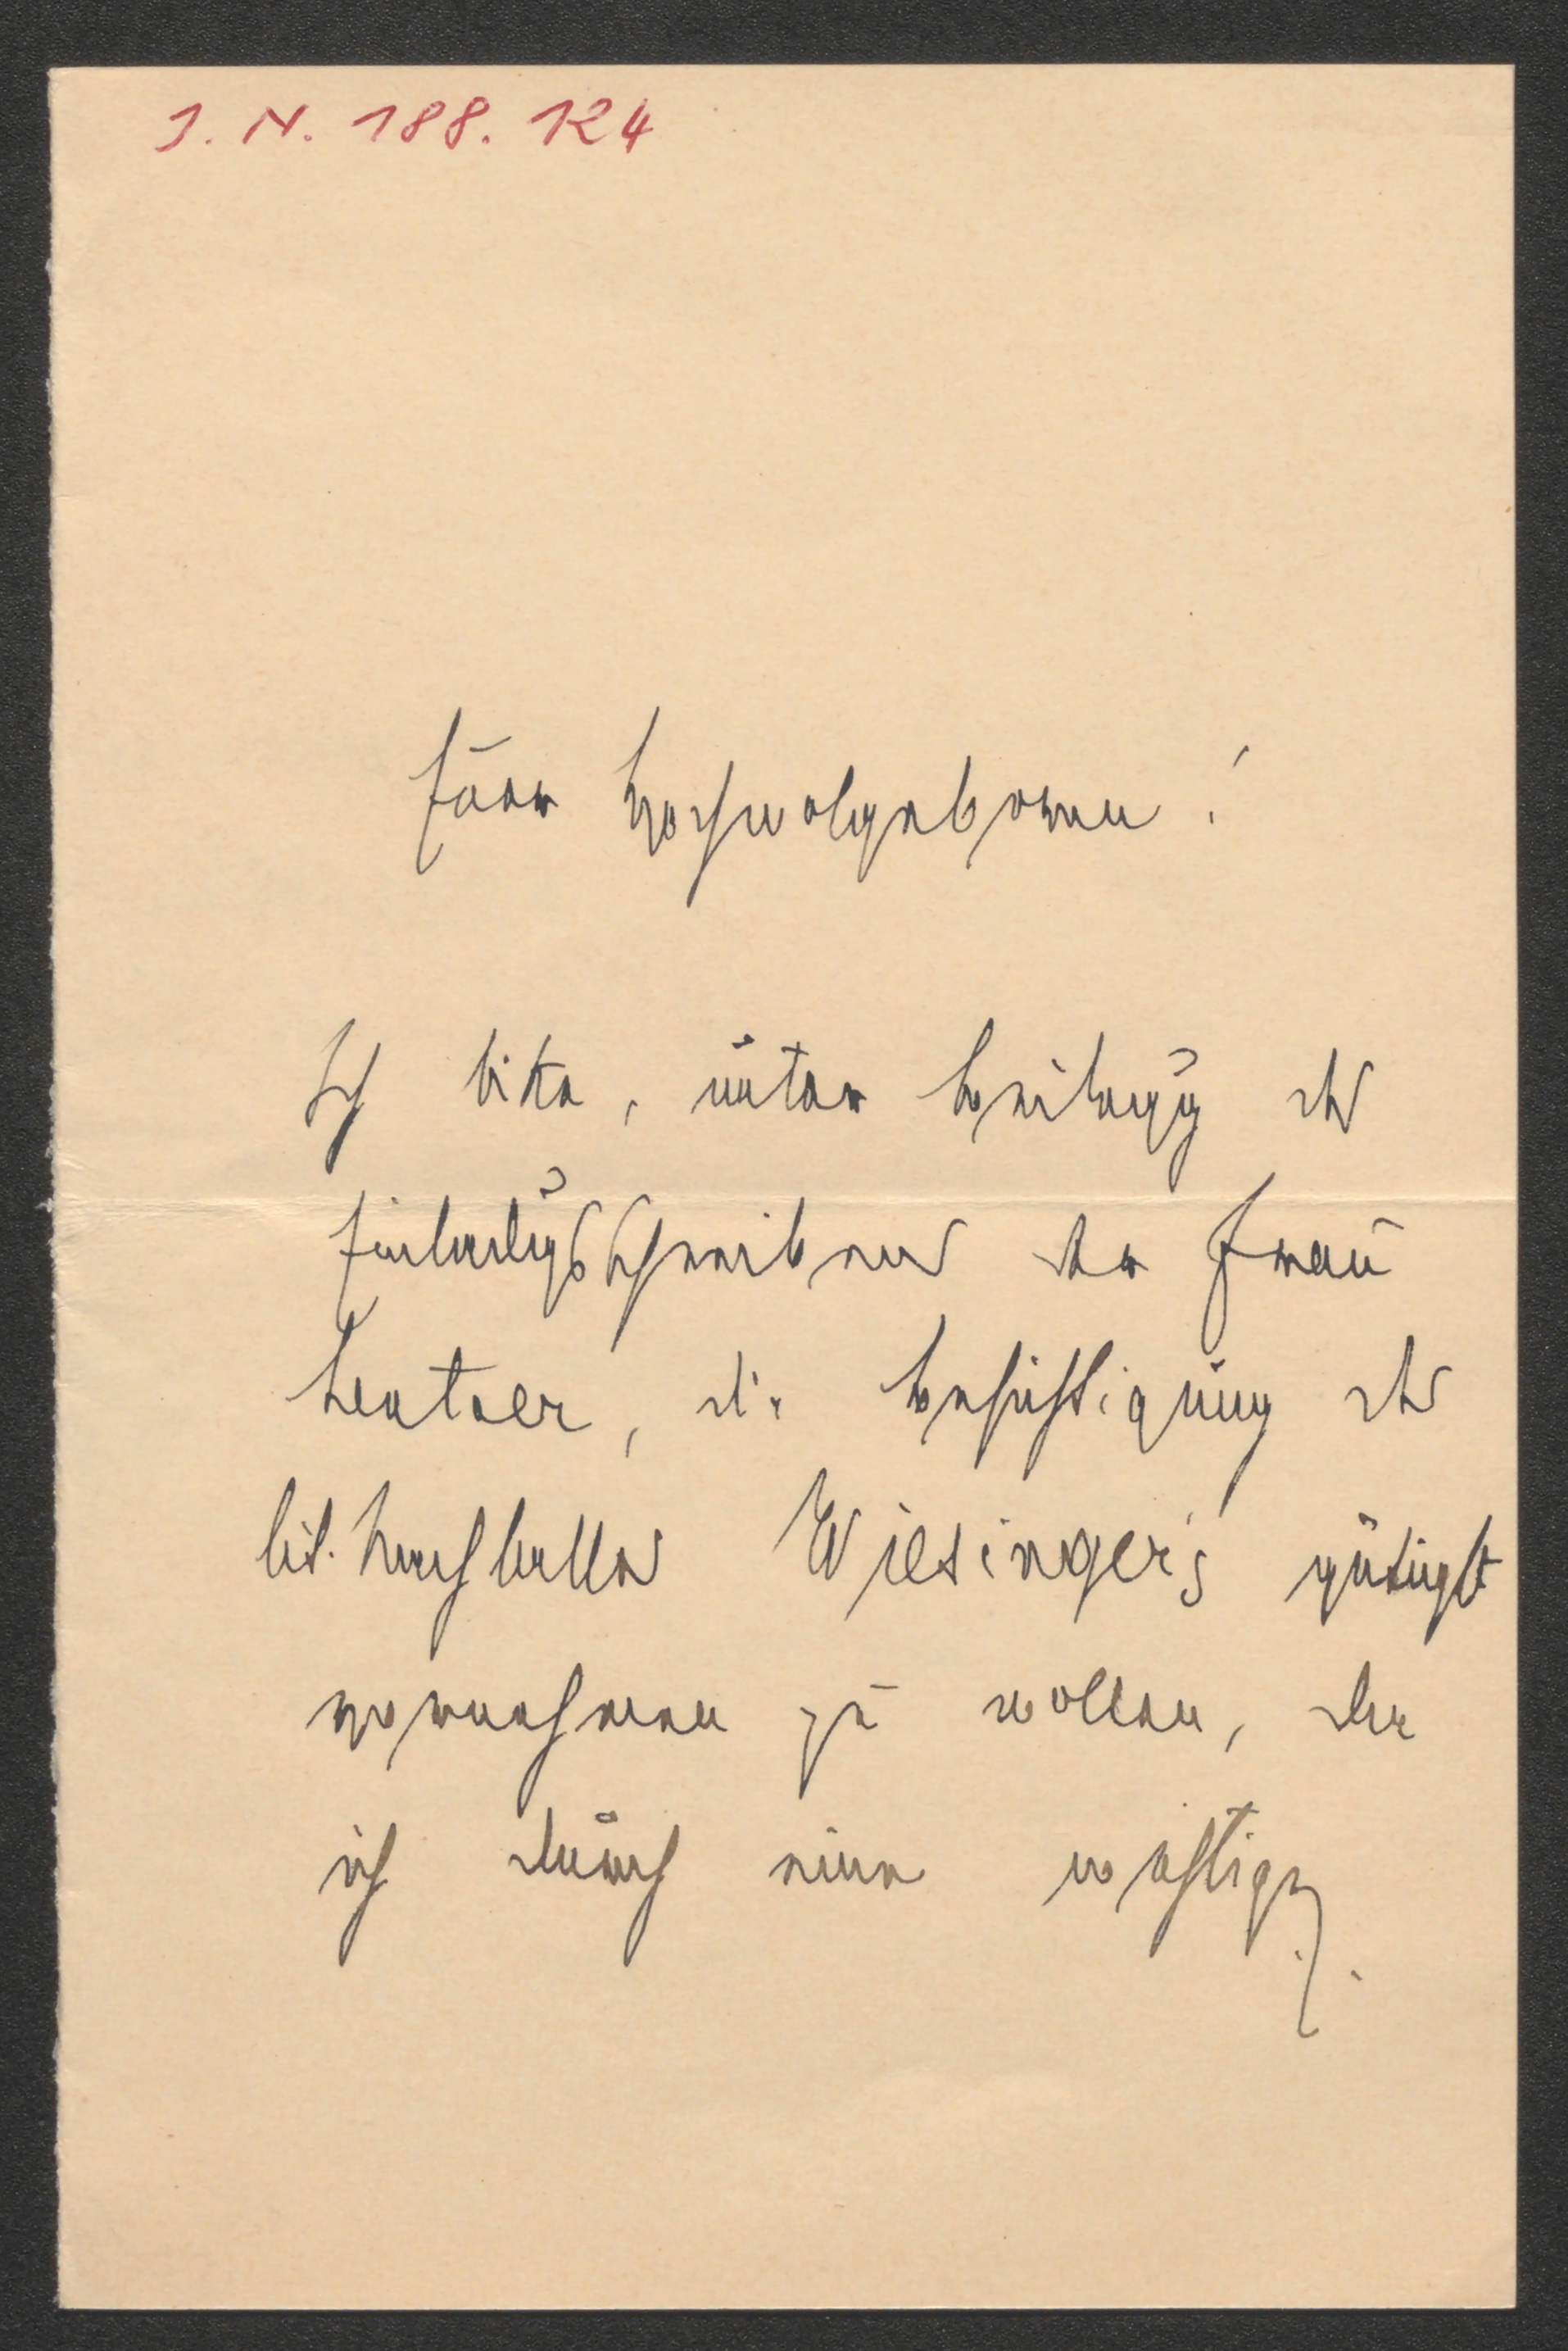 I. N. 188.124
Euer Hochwolgeboren!
Ich bitte, unter Beilegung des
Einladungsschreibens der Frau
die Besichtigung des
lit. Nachlasses Wiesinger's gütigst
vornehmen zu wollen, da
ich durch eine wichtige